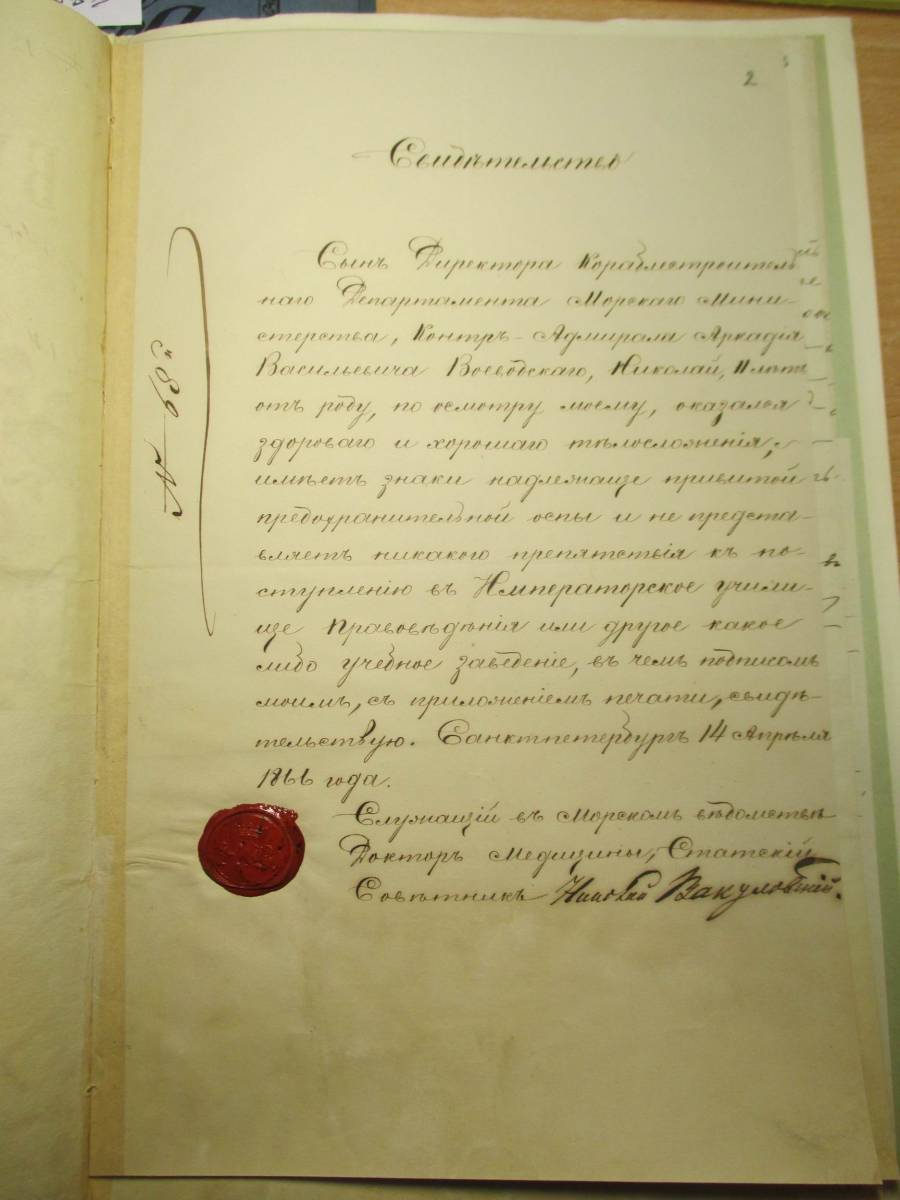 2
Свидѣтельство
№ 68й
Сынъ Директора Кораблестроитель
наго Департамента Морскаго Мини-
стерства, Контръ-Адмирала Аркадія
Васильевича Воеводскаго, Николай, 11 лѣтъ
отъ роду, по осмотру моему, оказался
здороваго и хорошаго тѣлосложенія,
имѣетъ знаки надлежаще привитой
предохранительной оспы и не предста-
вляетъ никакого препятствія къ по-
ступленію въ Императорское учили-
ще Правовѣдѣнія или другое какое
либо учебное заведеніе, въ чемъ подписомъ
моимъ, съ приложеніемъ печати, свидѣ-
тельствую. Санктпетербургъ 14 Апрѣля
1866 года.
Служащій въ Морскомъ вѣдомствѣ
Докторъ Медицины, Статскій
Совѣтникъ Николай Вакуловскій.